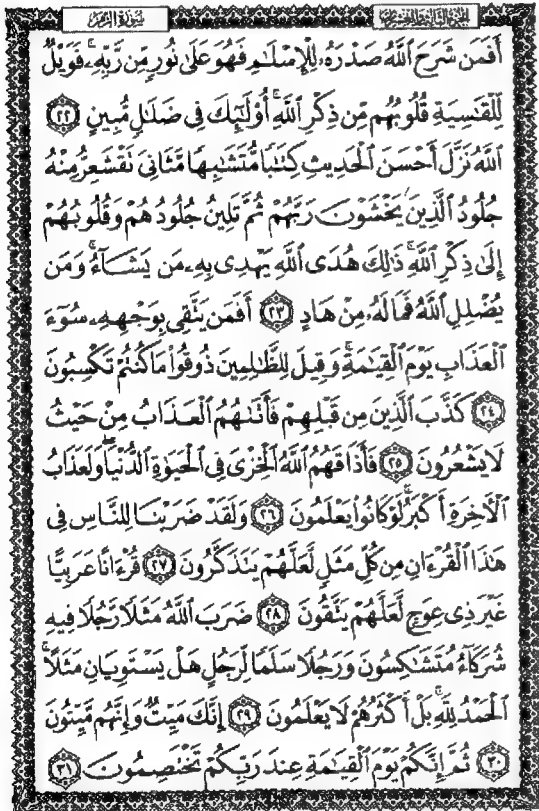 سورة الزمر
الجزء الثالث والعشرون
أَفَمَن شَرَحَ ٱللَّهُ صَدْرَهُۥ لِلْإِسْلَٰمِ فَهُوَ عَلَىٰ نُورٍ مِّن رَّبِّهِۦ ۚ فَوَيْلٌ
لِّلْقَٰسِيَةِ قُلُوبُهُم مِّن ذِكْرِ ٱللَّهِ ۚ أُو۟لَٰٓئِكَ فِى ضَلَٰلٍ مُّبِينٍ ٢٢
ٱللَّهُ نَزَّلَ أَحْسَنَ ٱلْحَدِيثِ كِتَٰبًا مُّتَشَٰبِهًا مَّثَانِىَ تَقْشَعِرُّ مِنْهُ
جُلُودُ ٱلَّذِينَ يَخْشَوْنَ رَبَّهُمْ ثُمَّ تَلِينُ جُلُودُهُمْ وَقُلُوبُهُمْ
إِلَىٰ ذِكْرِ ٱللَّهِ ۚ ذَٰلِكَ هُدَى ٱللَّهِ يَهْدِى بِهِۦ مَن يَشَآءُ ۚ وَمَن
يُضْلِلِ ٱللَّهُ فَمَا لَهُۥ مِنْ هَادٍ ٢٣ أَفَمَن يَتَّقِى بِوَجْهِهِۦ سُوٓءَ
ٱلْعَذَابِ يَوْمَ ٱلْقِيَٰمَةِ ۚ وَقِيلَ لِلظَّٰلِمِينَ ذُوقُوا۟ مَا كُنتُمْ تَكْسِبُونَ
٢٤ كَذَّبَ ٱلَّذِينَ مِن قَبْلِهِمْ فَأَتَىٰهُمُ ٱلْعَذَابُ مِنْ حَيْثُ
لَا يَشْعُرُونَ ٢٥ فَأَذَاقَهُمُ ٱللَّهُ ٱلْخِزْىَ فِى ٱلْحَيَوٰةِ ٱلدُّنْيَا ۖ وَلَعَذَابُ
ٱلْءَاخِرَةِ أَكْبَرُ ۚ لَوْ كَانُوا۟ يَعْلَمُونَ ٢٦ وَلَقَدْ ضَرَبْنَا لِلنَّاسِ فِى
هَٰذَا ٱلْقُرْءَانِ مِن كُلِّ مَثَلٍ لَّعَلَّهُمْ يَتَذَكَّرُونَ ٢٧ قُرْءَانًا عَرَبِيًّا
غَيْرَ ذِى عِوَجٍ لَّعَلَّهُمْ يَتَّقُونَ ٢٨ ضَرَبَ ٱللَّهُ مَثَلًا رَّجُلًا فِيهِ
شُرَكَآءُ مُتَشَٰكِسُونَ وَرَجُلًا سَلَمًا لِّرَجُلٍ هَلْ يَسْتَوِيَانِ مَثَلًا ۚ
ٱلْحَمْدُ لِلَّهِ ۚ بَلْ أَكْثَرُهُمْ لَا يَعْلَمُونَ ٢٩ إِنَّكَ مَيِّتٌ وَإِنَّهُم مَّيِّتُونَ
٣٠ ثُمَّ إِنَّكُمْ يَوْمَ ٱلْقِيَٰمَةِ عِندَ رَبِّكُمْ تَخْتَصِمُونَ ٣١